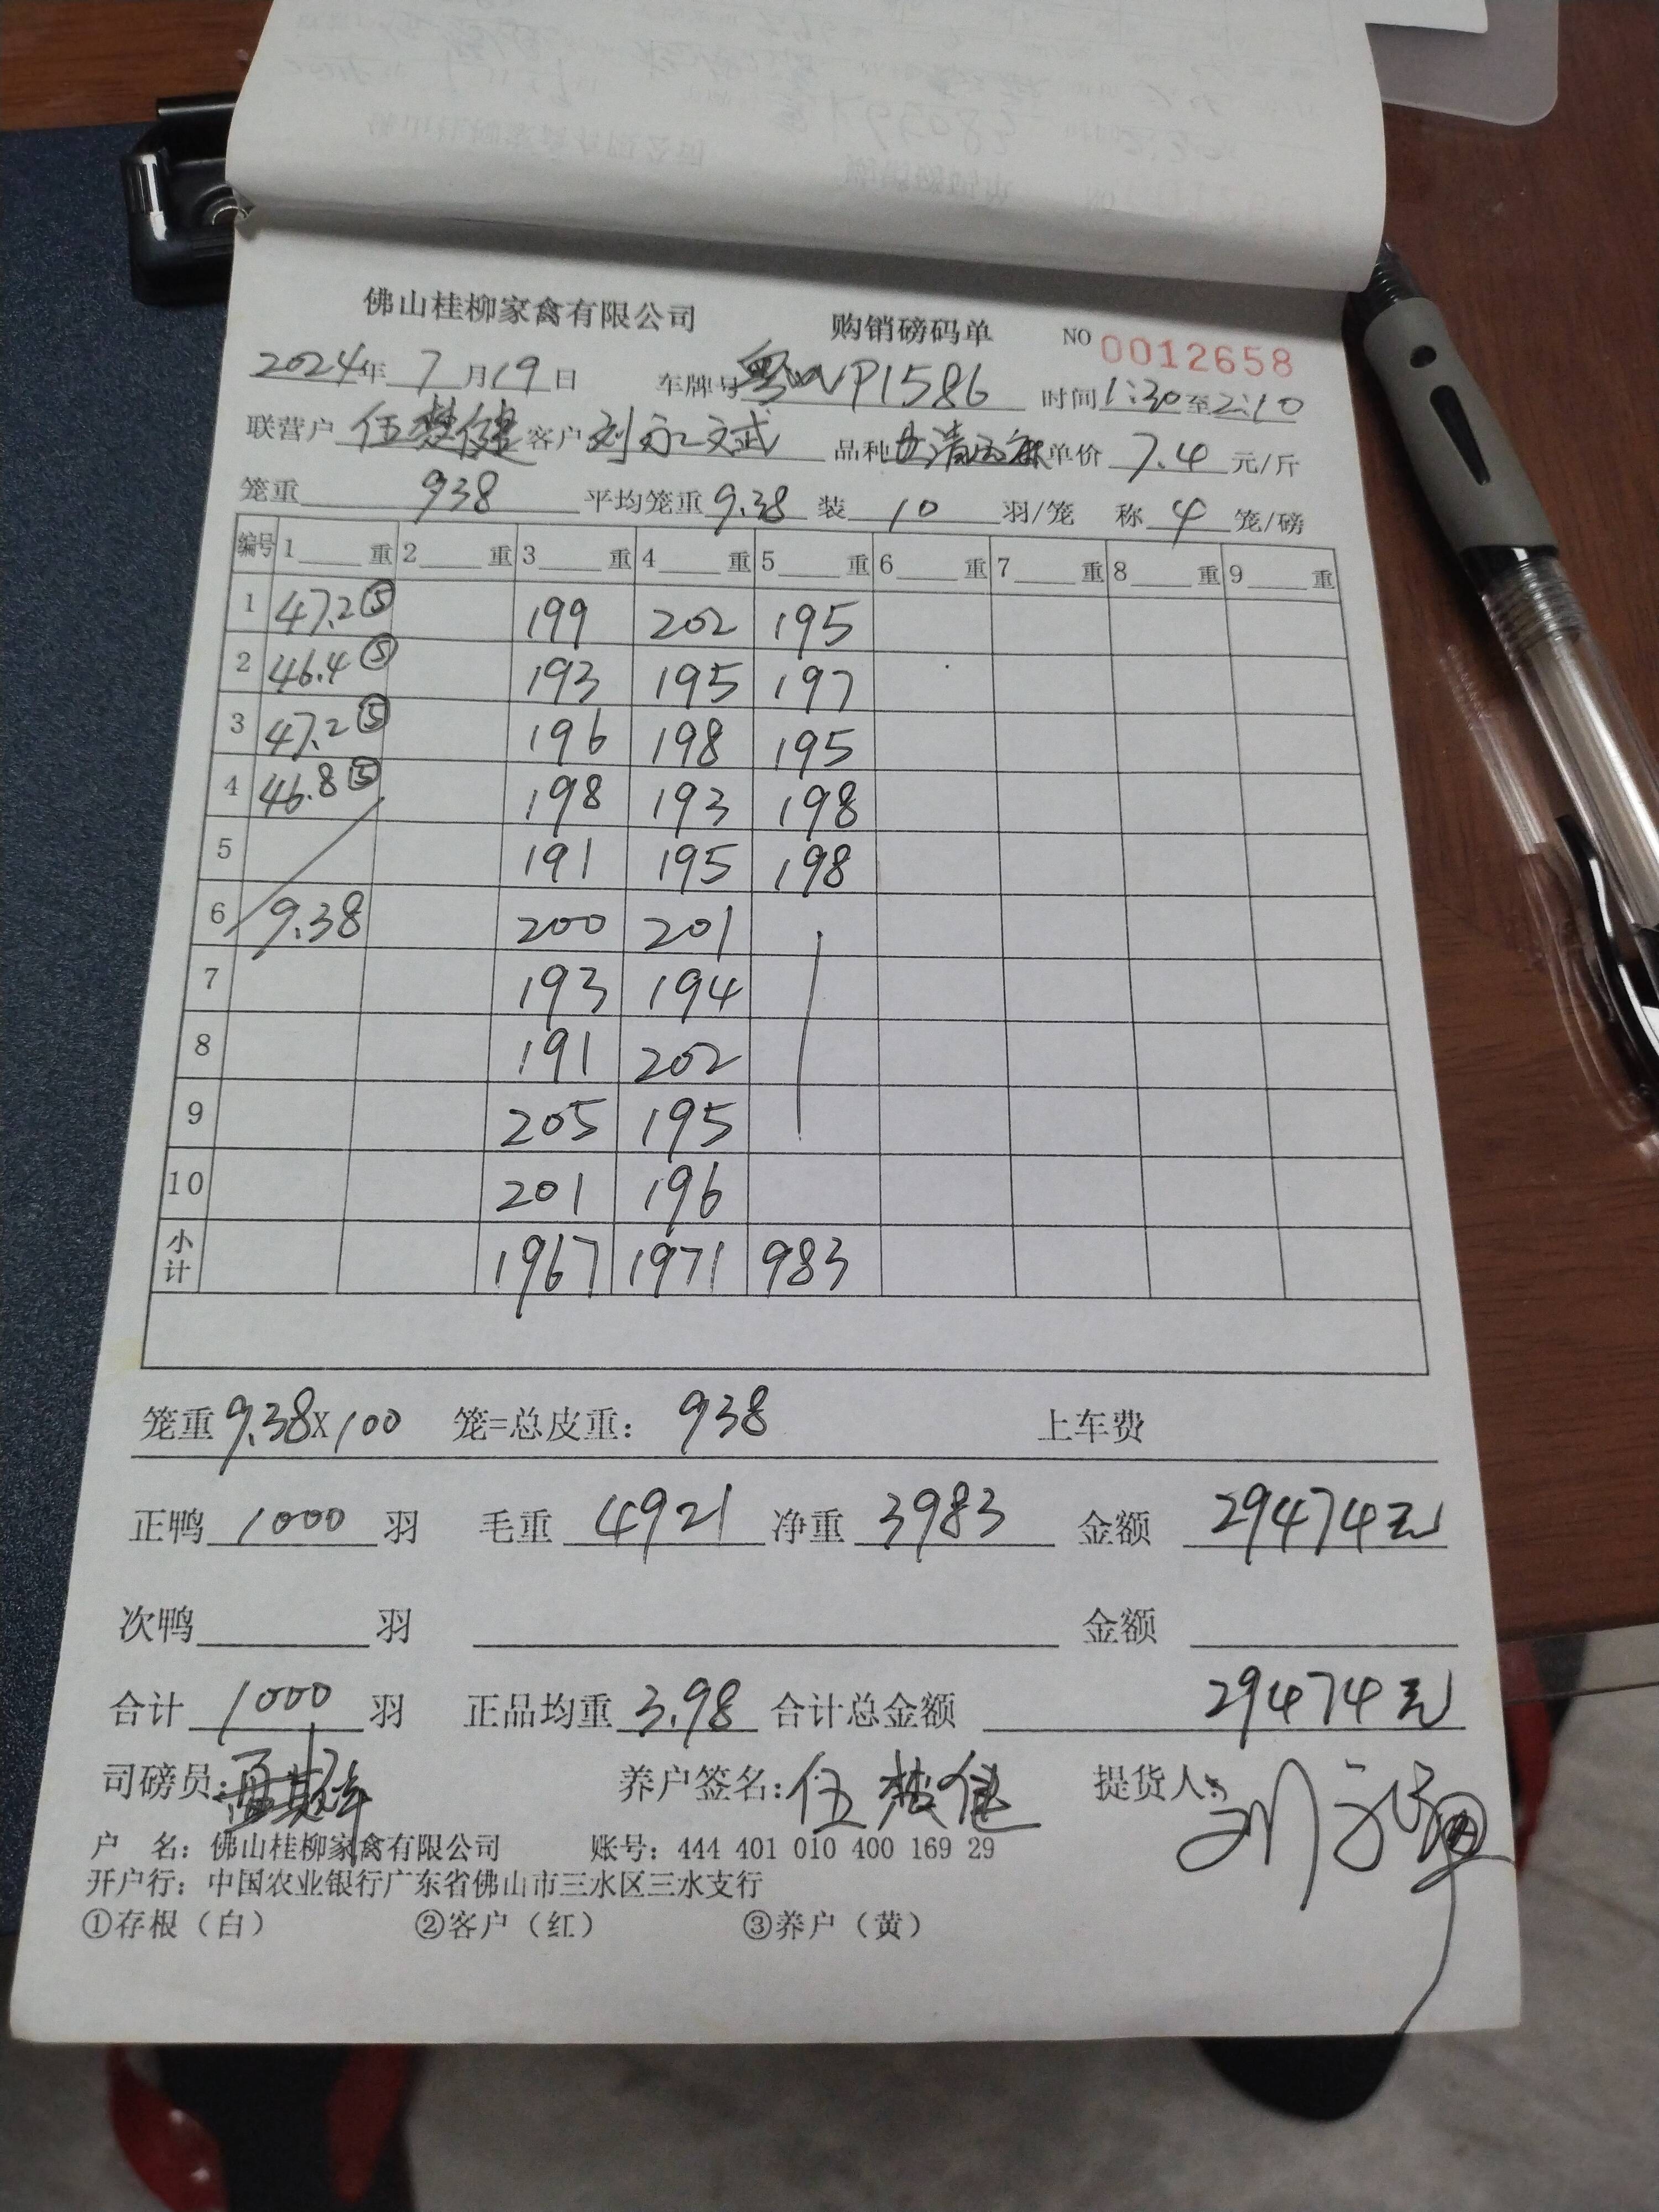 佛山桂柳家禽有限公司 购销磅码单 NO 0012658
2024年 7 月 19 日 车牌号 粤WVP1586 时间 1:30 至 2:10
联营户 伍楚健 客户 刘永文武 品种 单价 7.4 元/斤
笼重 938 平均笼重 9.38 装 10 羽/笼 称 4 笼/磅
编号 1 重 2 重 3 重 4 重 5 重 6 重 7 重 8 重 9 重
1 47.2⑤ 199 202 195
2 46.4⑤ 193 195 197
3 47.2⑤ 196 198 195
4 46.8⑤ 198 193 198
5 191 195 198
6 9.38 200 201
7 193 194
8 191 202
9 205 195
10 201 196
小计 1967 1971 983
笼重 9.38×100 笼=总皮重: 938 上车费
正鸭 1000 羽 毛重 4921 净重 3983 金额 29474元
次鸭 羽 金额
合计 1000 羽 正品均重 3.98 合计总金额 29474元
司磅员: 养户签名: 伍楚健 提货人:
户 名: 佛山桂柳家禽有限公司 账号: 444 401 010 400 169 29
开户行: 中国农业银行广东省佛山市三水区三水支行
①存根（白） ②客户（红） ③养户（黄）